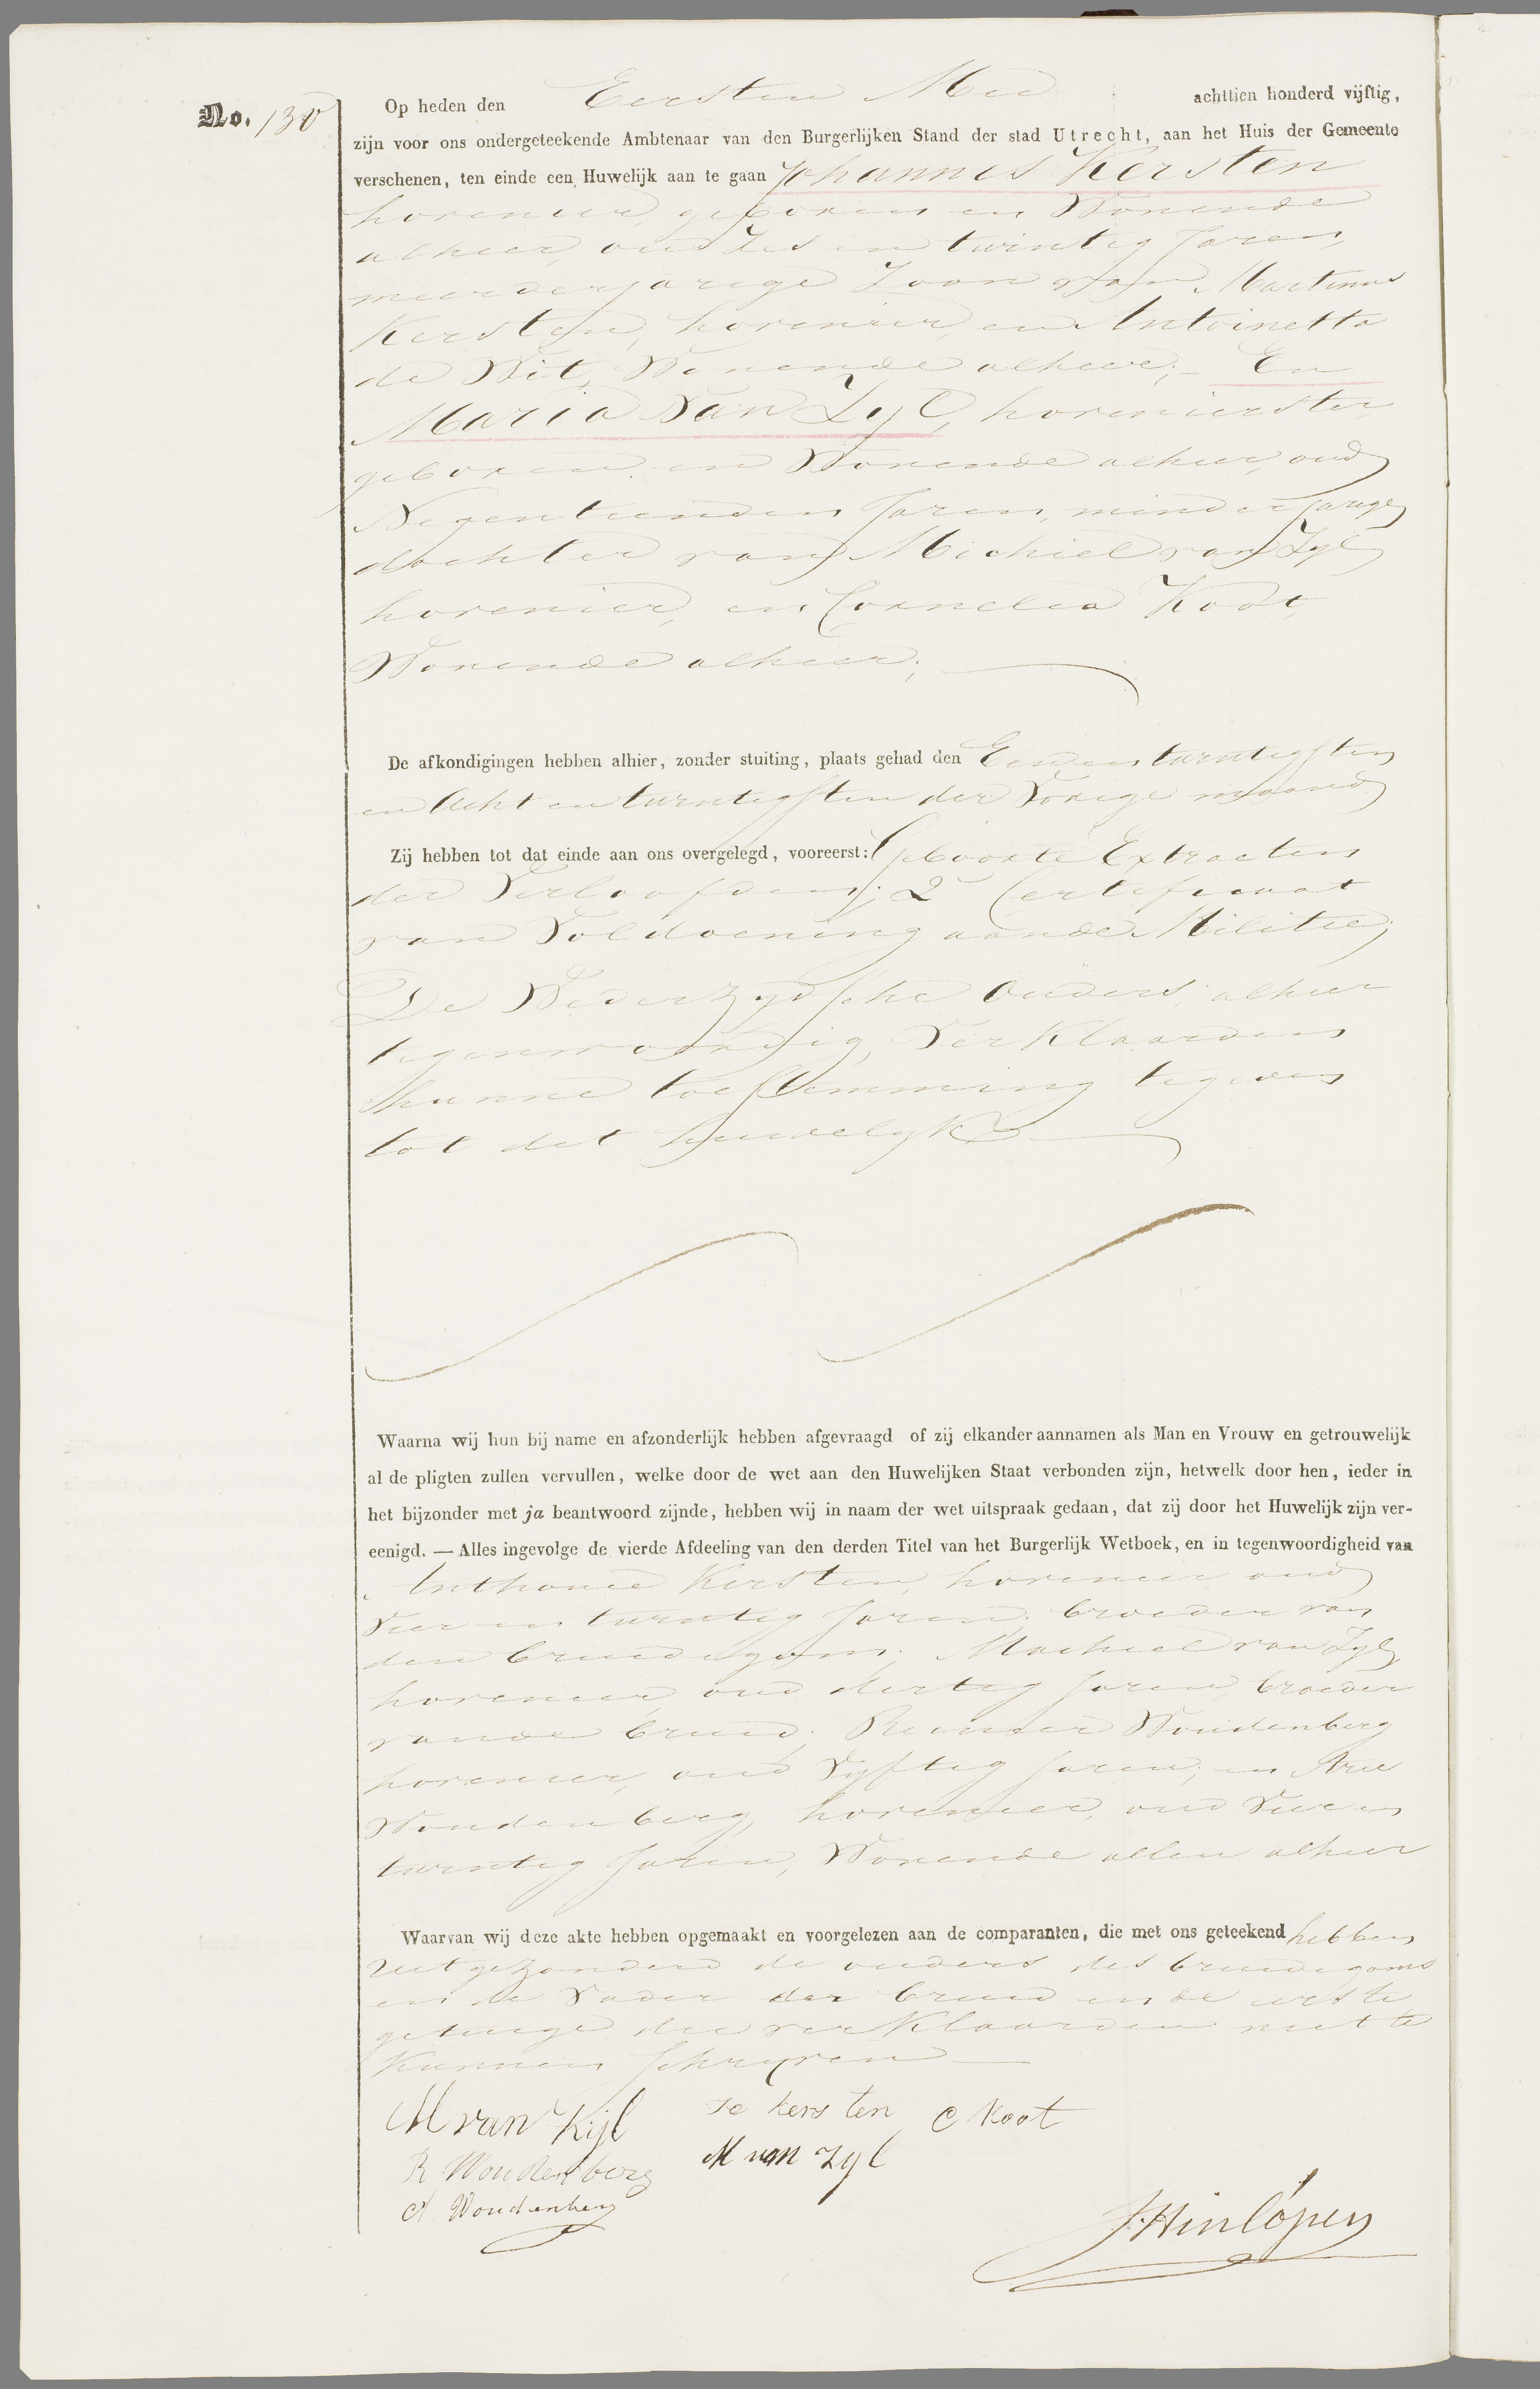 No. 130
Op heden den Eersten Mei achttien honderd vijftig,
zijn voor ons ondergeteekende Ambtenaar van den Burgerlijken Stand der stad Utrecht, aan het Huis der Gemeente
verschenen, ten einde een Huwelijk aan te gaan Johannes Kersten
hovenier, geboren en Wonende
alhier, oud Zes en twintig Jaren,
meerderjarige Zoon van Martinus
Kersten, hovenier, en Antoinetta
de Wit, Wonende alhier; – En
Maria Van Zyl, hovenierster
geboren en Wonende alhier, oud
Negentienden Jaren, minderjarige
dochter van Michiel van Zyl
hovenier, en Cornelia Kodt,
Wonende alhier;
De afkondigingen hebben alhier, zonder stuiting, plaats gehad den Eenentwintigsten
en Acht en twintigsten der Vorige maand
Zij hebben tot dat einde aan ons overgelegd, vooreerst: Geboorte Extracten
der Verloofden; 2 Certificaat
van Voldoening aan de Militie;
De Wederzydsche Ouders, alhier
tegenwoordig, Verklaarden
hunne toestemming tegeven
tot dit huwelyk
Waarna wij hun bij name en afzonderlijk hebben afgevraagd of zij elkander aannamen als Man en Vrouw en getrouwelijk
al de pligten zullen vervullen, welke door de wet aan den Huwelijken Staat verbonden zijn, hetwelk door hen, ieder in
het bijzonder met ja beantwoord zijnde, hebben wij in naam der wet uitspraak gedaan, dat zij door het Huwelijk zijn ver-
eenigd. — Alles ingevolge de vierde Afdeeling van den derden Titel van het Burgerlijk Wetboek, en in tegenwoordigheid van
Anthonie Kersten, hovenier, oud
Vier en twintig Jaren, broeder van
den bruidegom; Machiel van Zyl,
hovenier, oud dertig Jaren, broeder
van de bruid; Reinier Woudenberg
hovenier, oud Vyftig Jaren; en Arie
Woudenberg, hovenier, oud Vier en
twintig Jaren, Wonende allen alhier
Waarvan wij deze akte hebben opgemaakt en voorgelezen aan de comparanten, die met ons geteekend hebben
uitgezonderd de ouders des bruidegoms
en de Vader der bruid en de eerste
getuige die verklaarden niet te
kunnen schryven
M van Kijl Je kersten C Koot
R Woudenberg M van zyl
A Woudenberg
J. Hinlópen